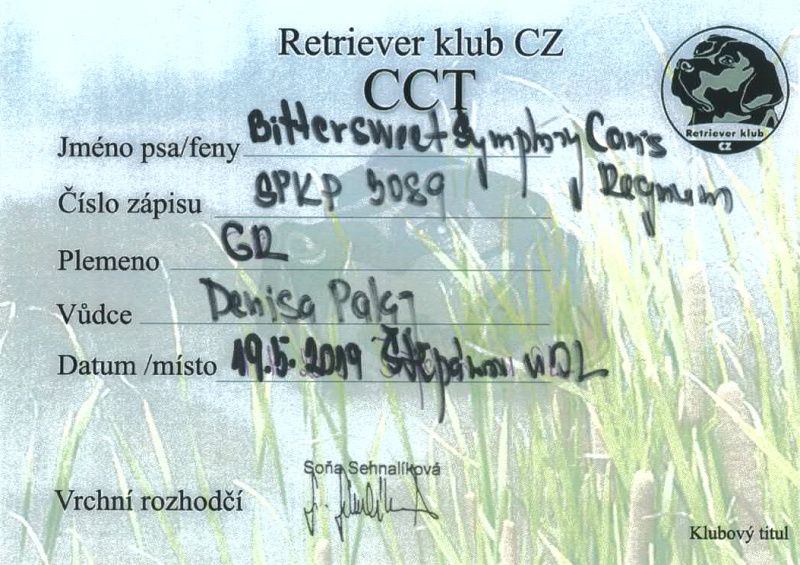 Retriever klub CZ
CCT
Retriever klub
CZ
Jméno psa/feny Bittersweet Symphony Canis
Regnum
Číslo zápisu SPKP 3089
Plemeno GR
Vůdce Denisa
Datum /místo 19.5.2019 Štěpánov
Soňa Sehnalíková
Vrchní rozhodčí
Klubový titul